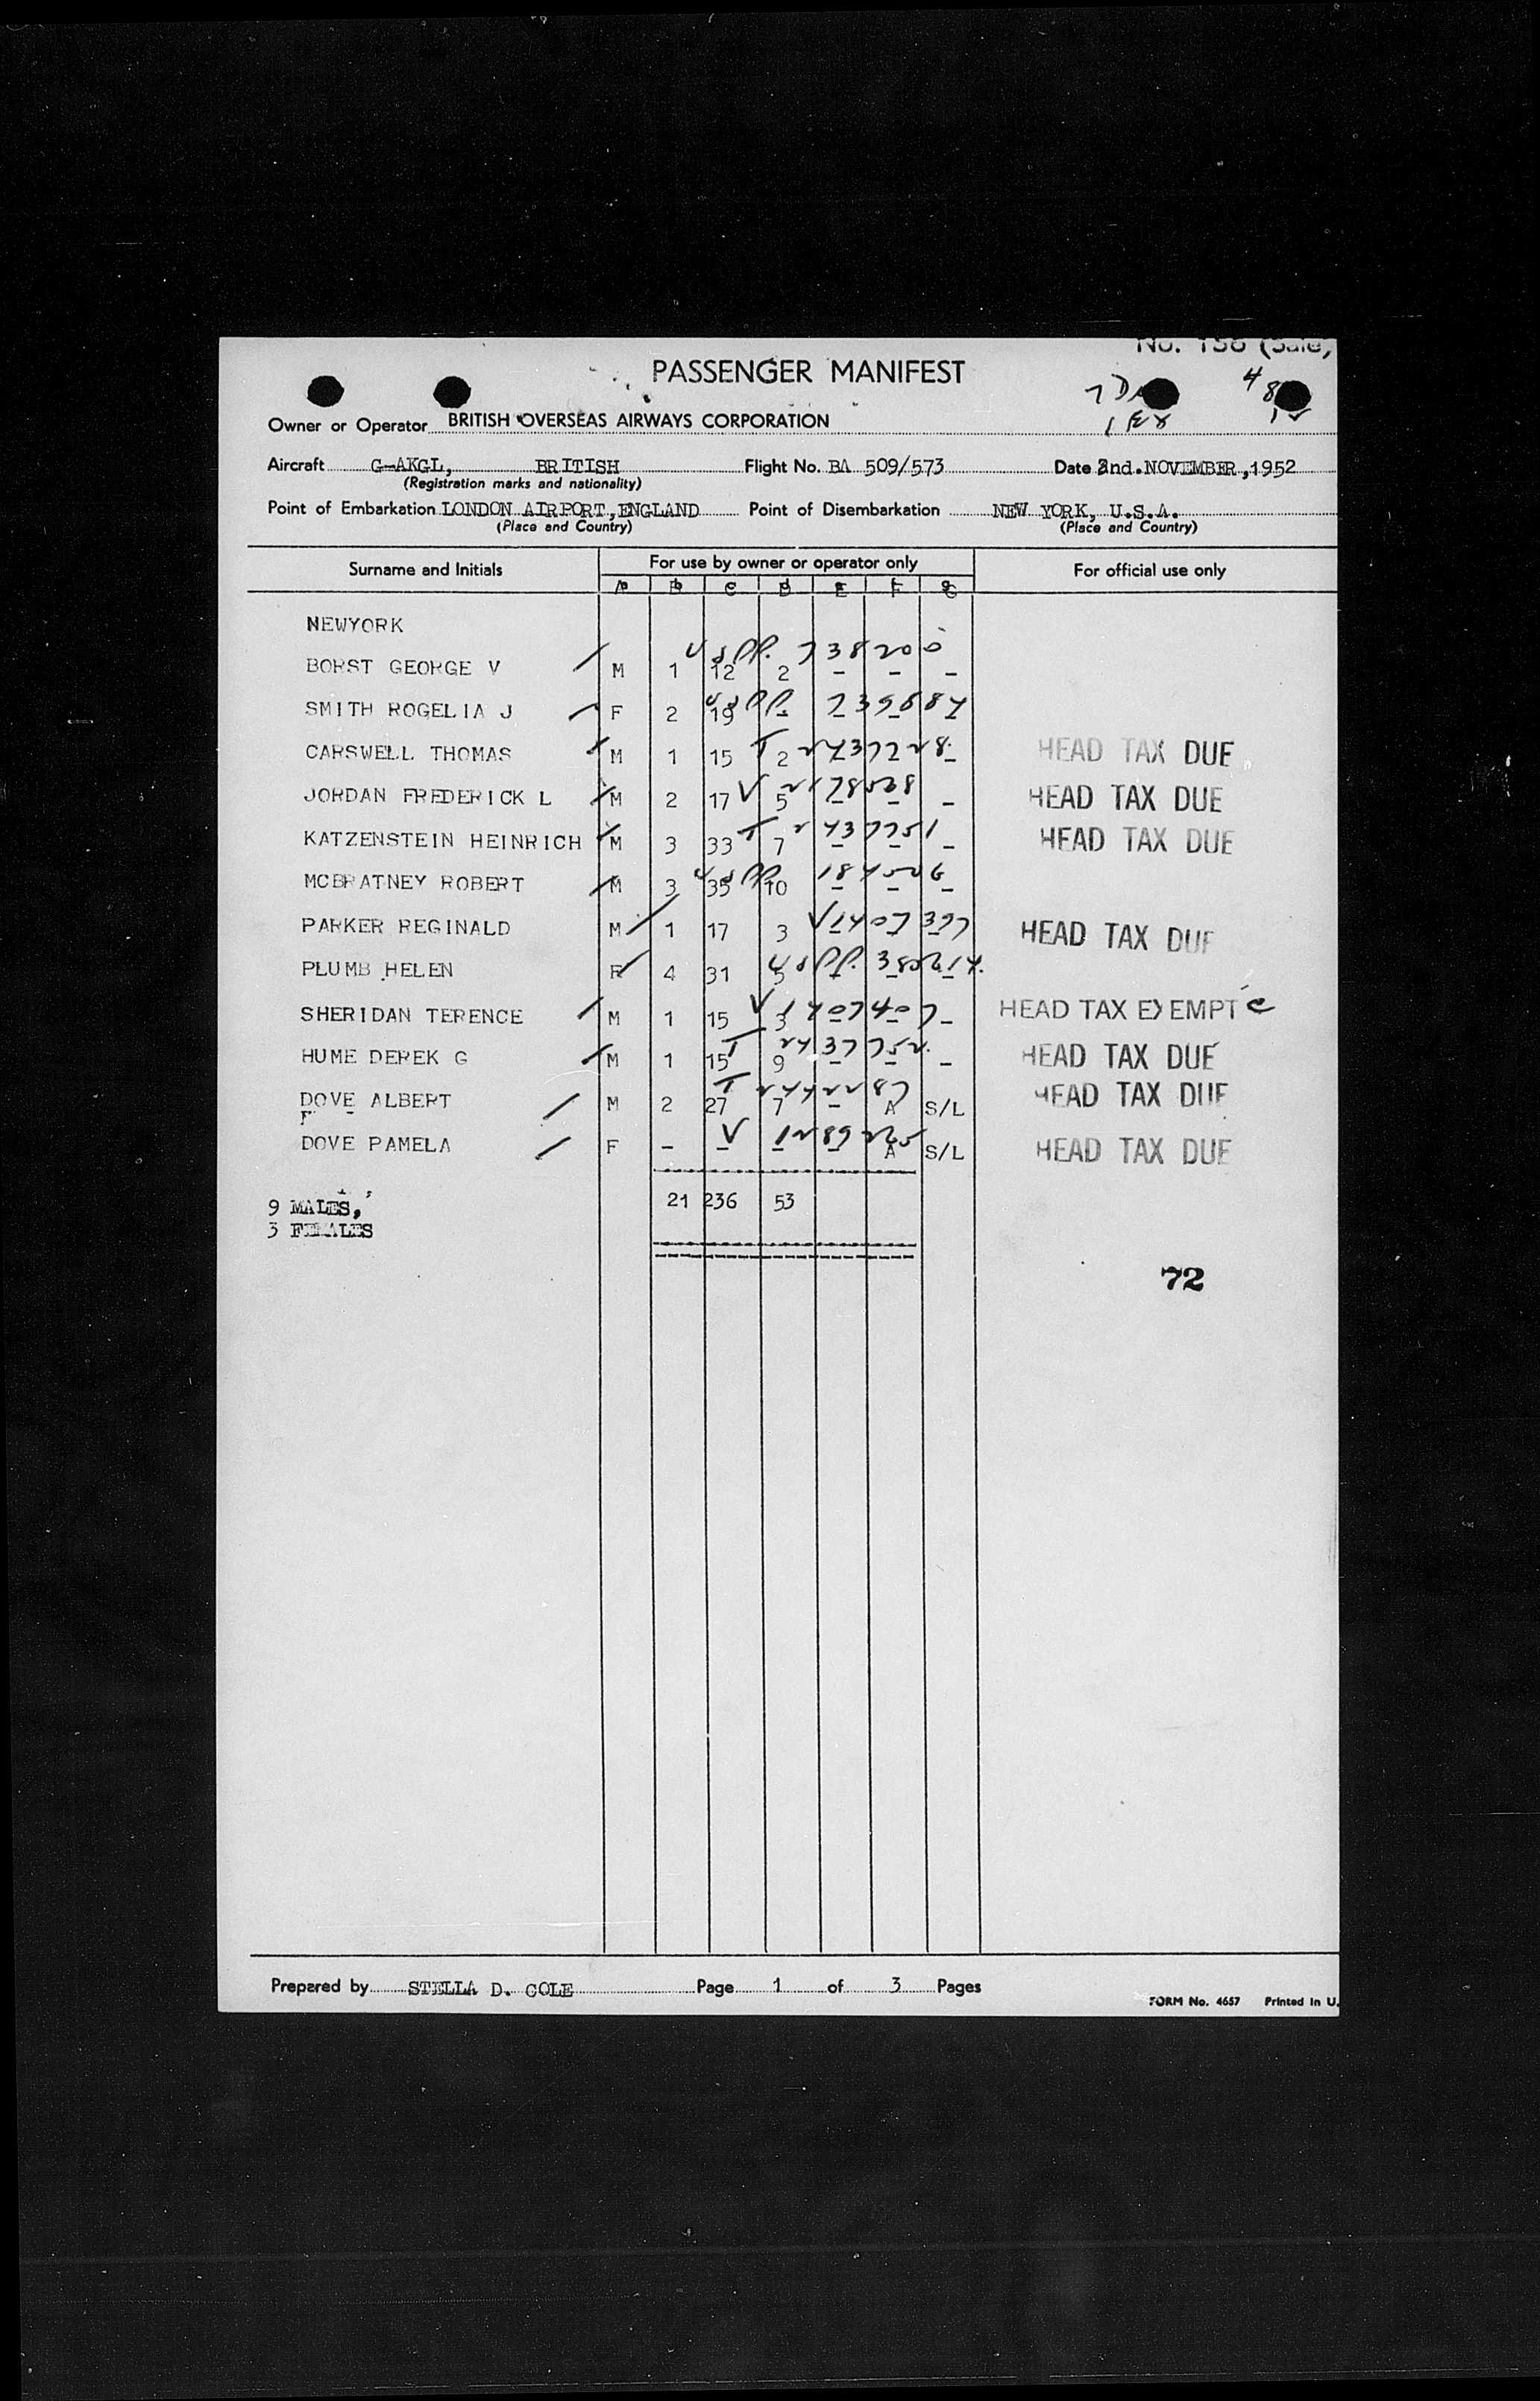 PASSENGER MANIFEST
Owner or Operator BRITISH OVERSEAS AIRWAYS CORPORATION
Aircraft G-AKGL, BRITISH Flight No. BA 509/573 Date 2nd.NOVEMBER,1952
(Registration marks and nationality)
Point of Embarkation LONDON AIRPORT,ENGLAND Point of Disembarkation NEW YORK, U.S.A.
(Place and Country) (Place and Country)
Surname and Initials For use by owner or operator only For official use only
A B C D E F G
NEWYORK
BORST GEORGE V M 1 12 2 - - -
SMITH ROGELIA J F 2 19 - - - -
CARSWELL THOMAS M 1 15 2 - - - HEAD TAX DUE
JORDAN FREDERICK L M 2 17 5 - - - HEAD TAX DUE
KATZENSTEIN HEINRICH M 3 33 7 - - - HEAD TAX DUE
MCBRATNEY ROBERT M 3 35 10 - - -
PARKER REGINALD M 1 17 3 - - - HEAD TAX DUE
PLUMB HELEN F 4 31 5 - - -
SHERIDAN TERENCE M 1 15 3 - - - HEAD TAX EXEMPT C
HUME DEREK G M 1 15 9 - - - HEAD TAX DUE
DOVE ALBERT M 2 27 7 - A S/L HEAD TAX DUE
F
DOVE PAMELA F - - - - A S/L HEAD TAX DUE
21 236 53
9 MALES,
3 FEMALES
72
Prepared by STELLA D. COLE Page 1 of 3 Pages
FORM No. 4657 Printed in U.